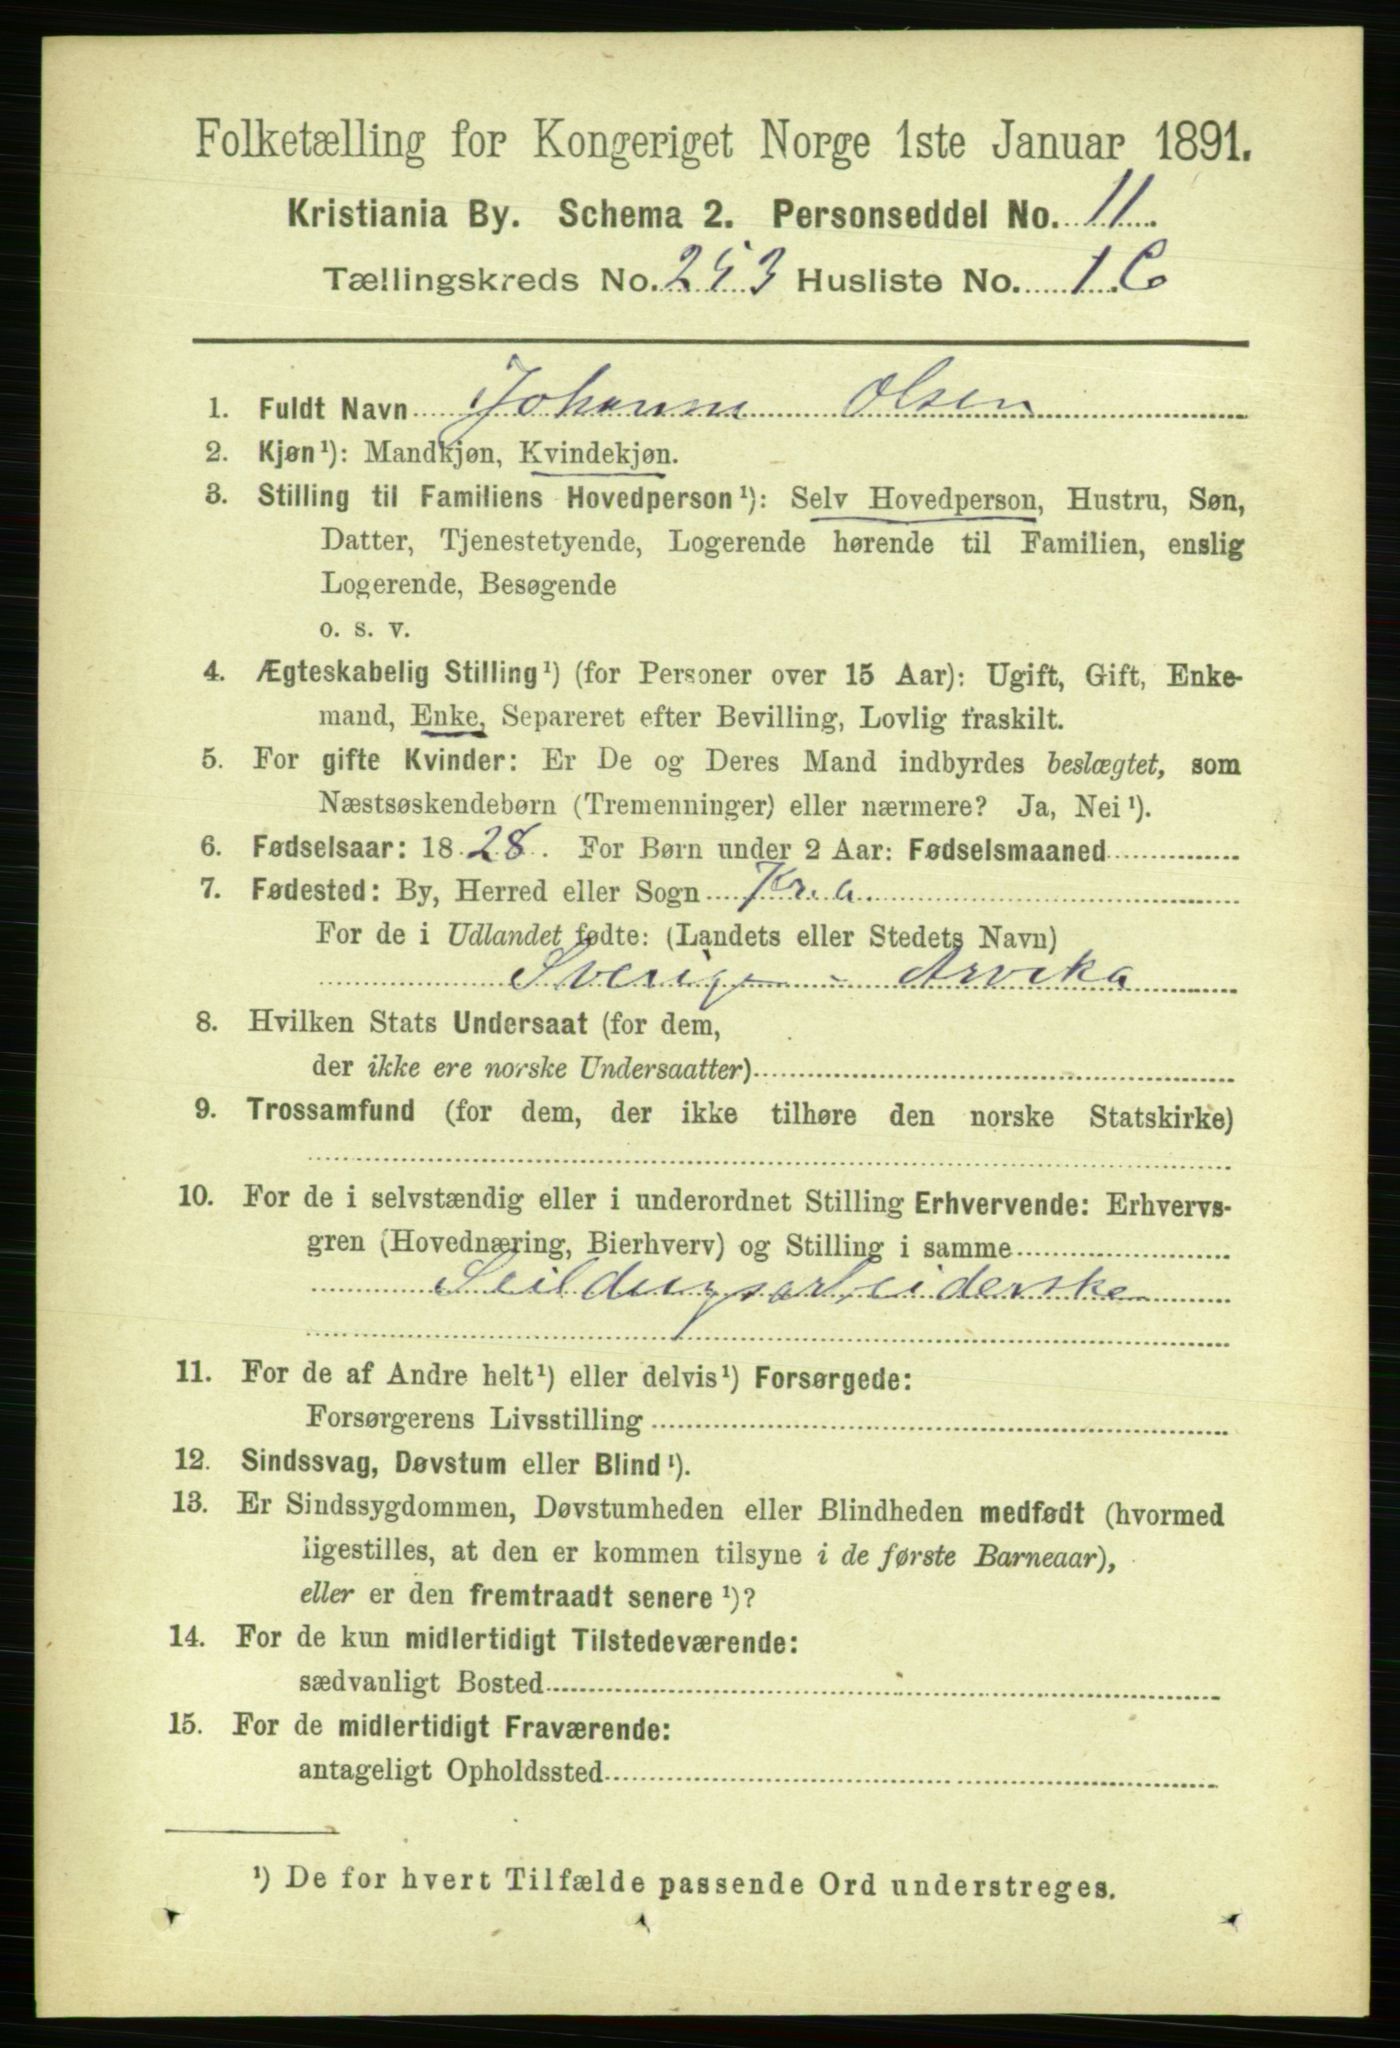 Folketælling for Kongeriget Norge 1ste Januar 1891.
Kristiania By. Schema 2. Personseddel No. 11.
Tællingskreds No. 253 Husliste No. 1.C
1. Fuldt Navn Johanne Olsen
2. Kjøn¹): Mandkjøn, Kvindekjøn.
3. Stilling til Familiens Hovedperson¹): Selv Hovedperson, Hustru, Søn,
Datter, Tjenestetyende, Logerende hørende til Familien, enslig
Logerende, Besøgende
o. s. v.
4. Ægteskabelig Stilling¹) (for Personer over 15 Aar): Ugift, Gift, Enke-
mand, Enke, Separeret efter Bevilling, Lovlig fraskilt.
5. For gifte Kvinder: Er De og Deres Mand indbyrdes beslægtet, som
Næstsøskendebørn (Tremenninger) eller nærmere? Ja, Nei¹).
6. Fødselsaar: 1828. For Børn under 2 Aar: Fødselsmaaned
7. Fødested: By, Herred eller Sogn Kr.a.
For de i Udlandet fødte: (Landets eller Stedets Navn)
Sverige - Arvika
8. Hvilken Stats Undersaat (for dem,
der ikke ere norske Undersaatter)
9. Trossamfund (for dem, der ikke tilhøre den norske Statskirke)
10. For de i selvstændig eller i underordnet Stilling Erhvervende: Erhvervs-
gren (Hovednæring, Bierhverv) og Stilling i samme
Seildugsarbeiderske
11. For de af Andre helt¹) eller delvis¹) Forsørgede:
Forsørgerens Livsstilling
12. Sindssvag, Døvstum eller Blind¹).
13. Er Sindssygdommen, Døvstumheden eller Blindheden medfødt (hvormed
ligestilles, at den er kommen tilsyne i de første Barneaar),
eller er den fremtraadt senere¹)?
14. For de kun midlertidigt Tilstedeværende:
sædvanligt Bosted
15. For de midlertidigt Fraværende:
antageligt Opholdssted
¹) De for hvert Tilfælde passende Ord understreges.